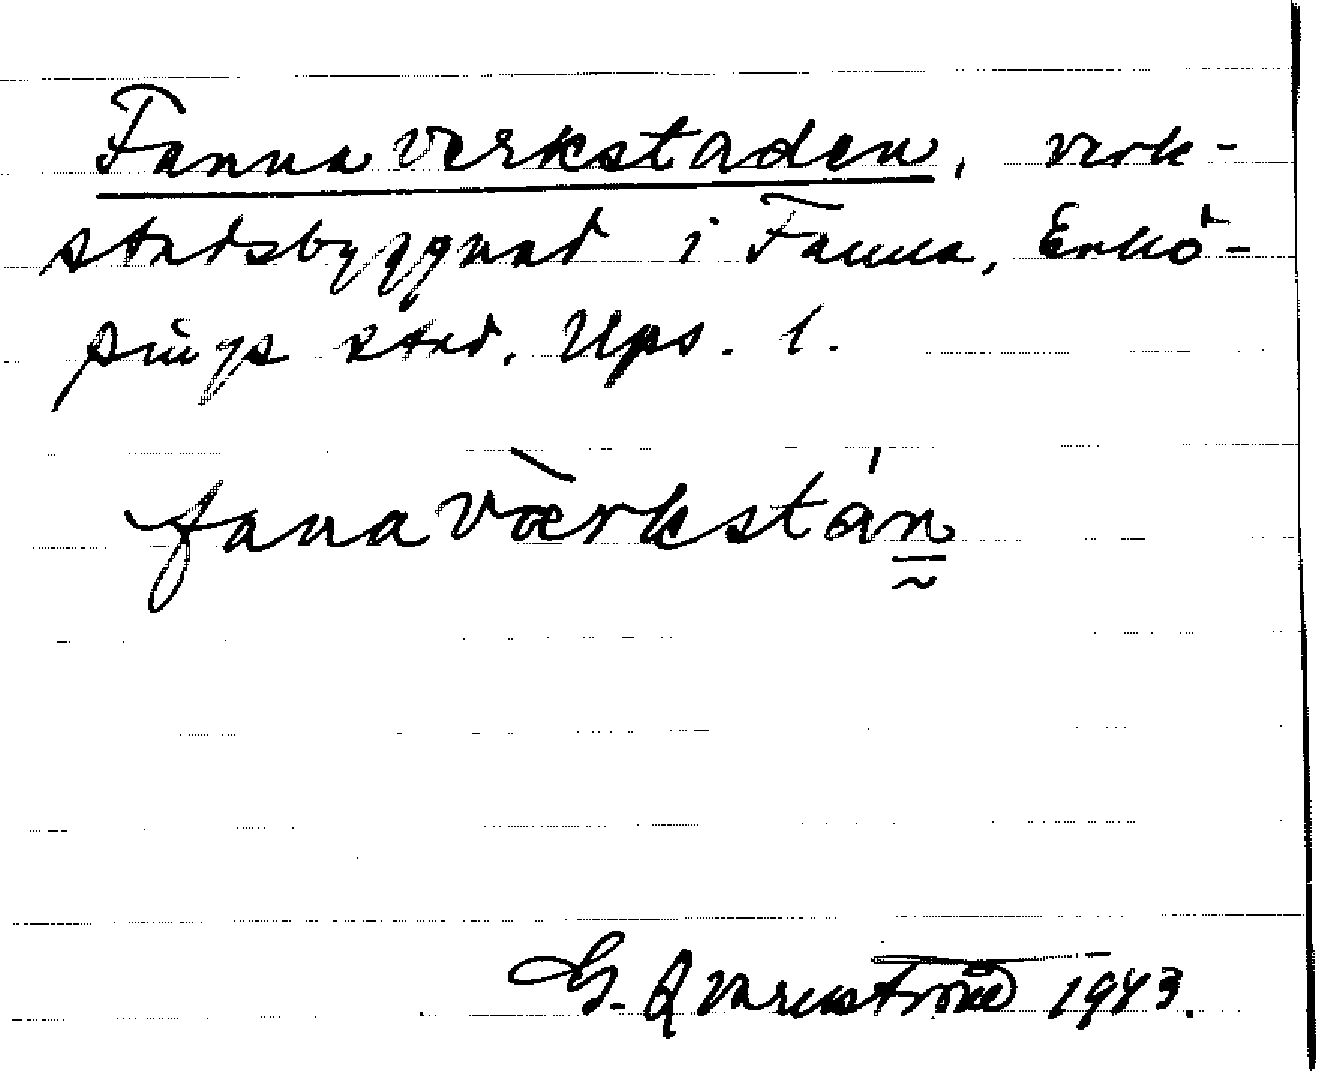 Fannaverkstaden, verk-
stadsbyggnad i Fanna, Enkö-
pings stad, Ups. l.
fanavæ̀rkstán
G. Qvarnström 1943.